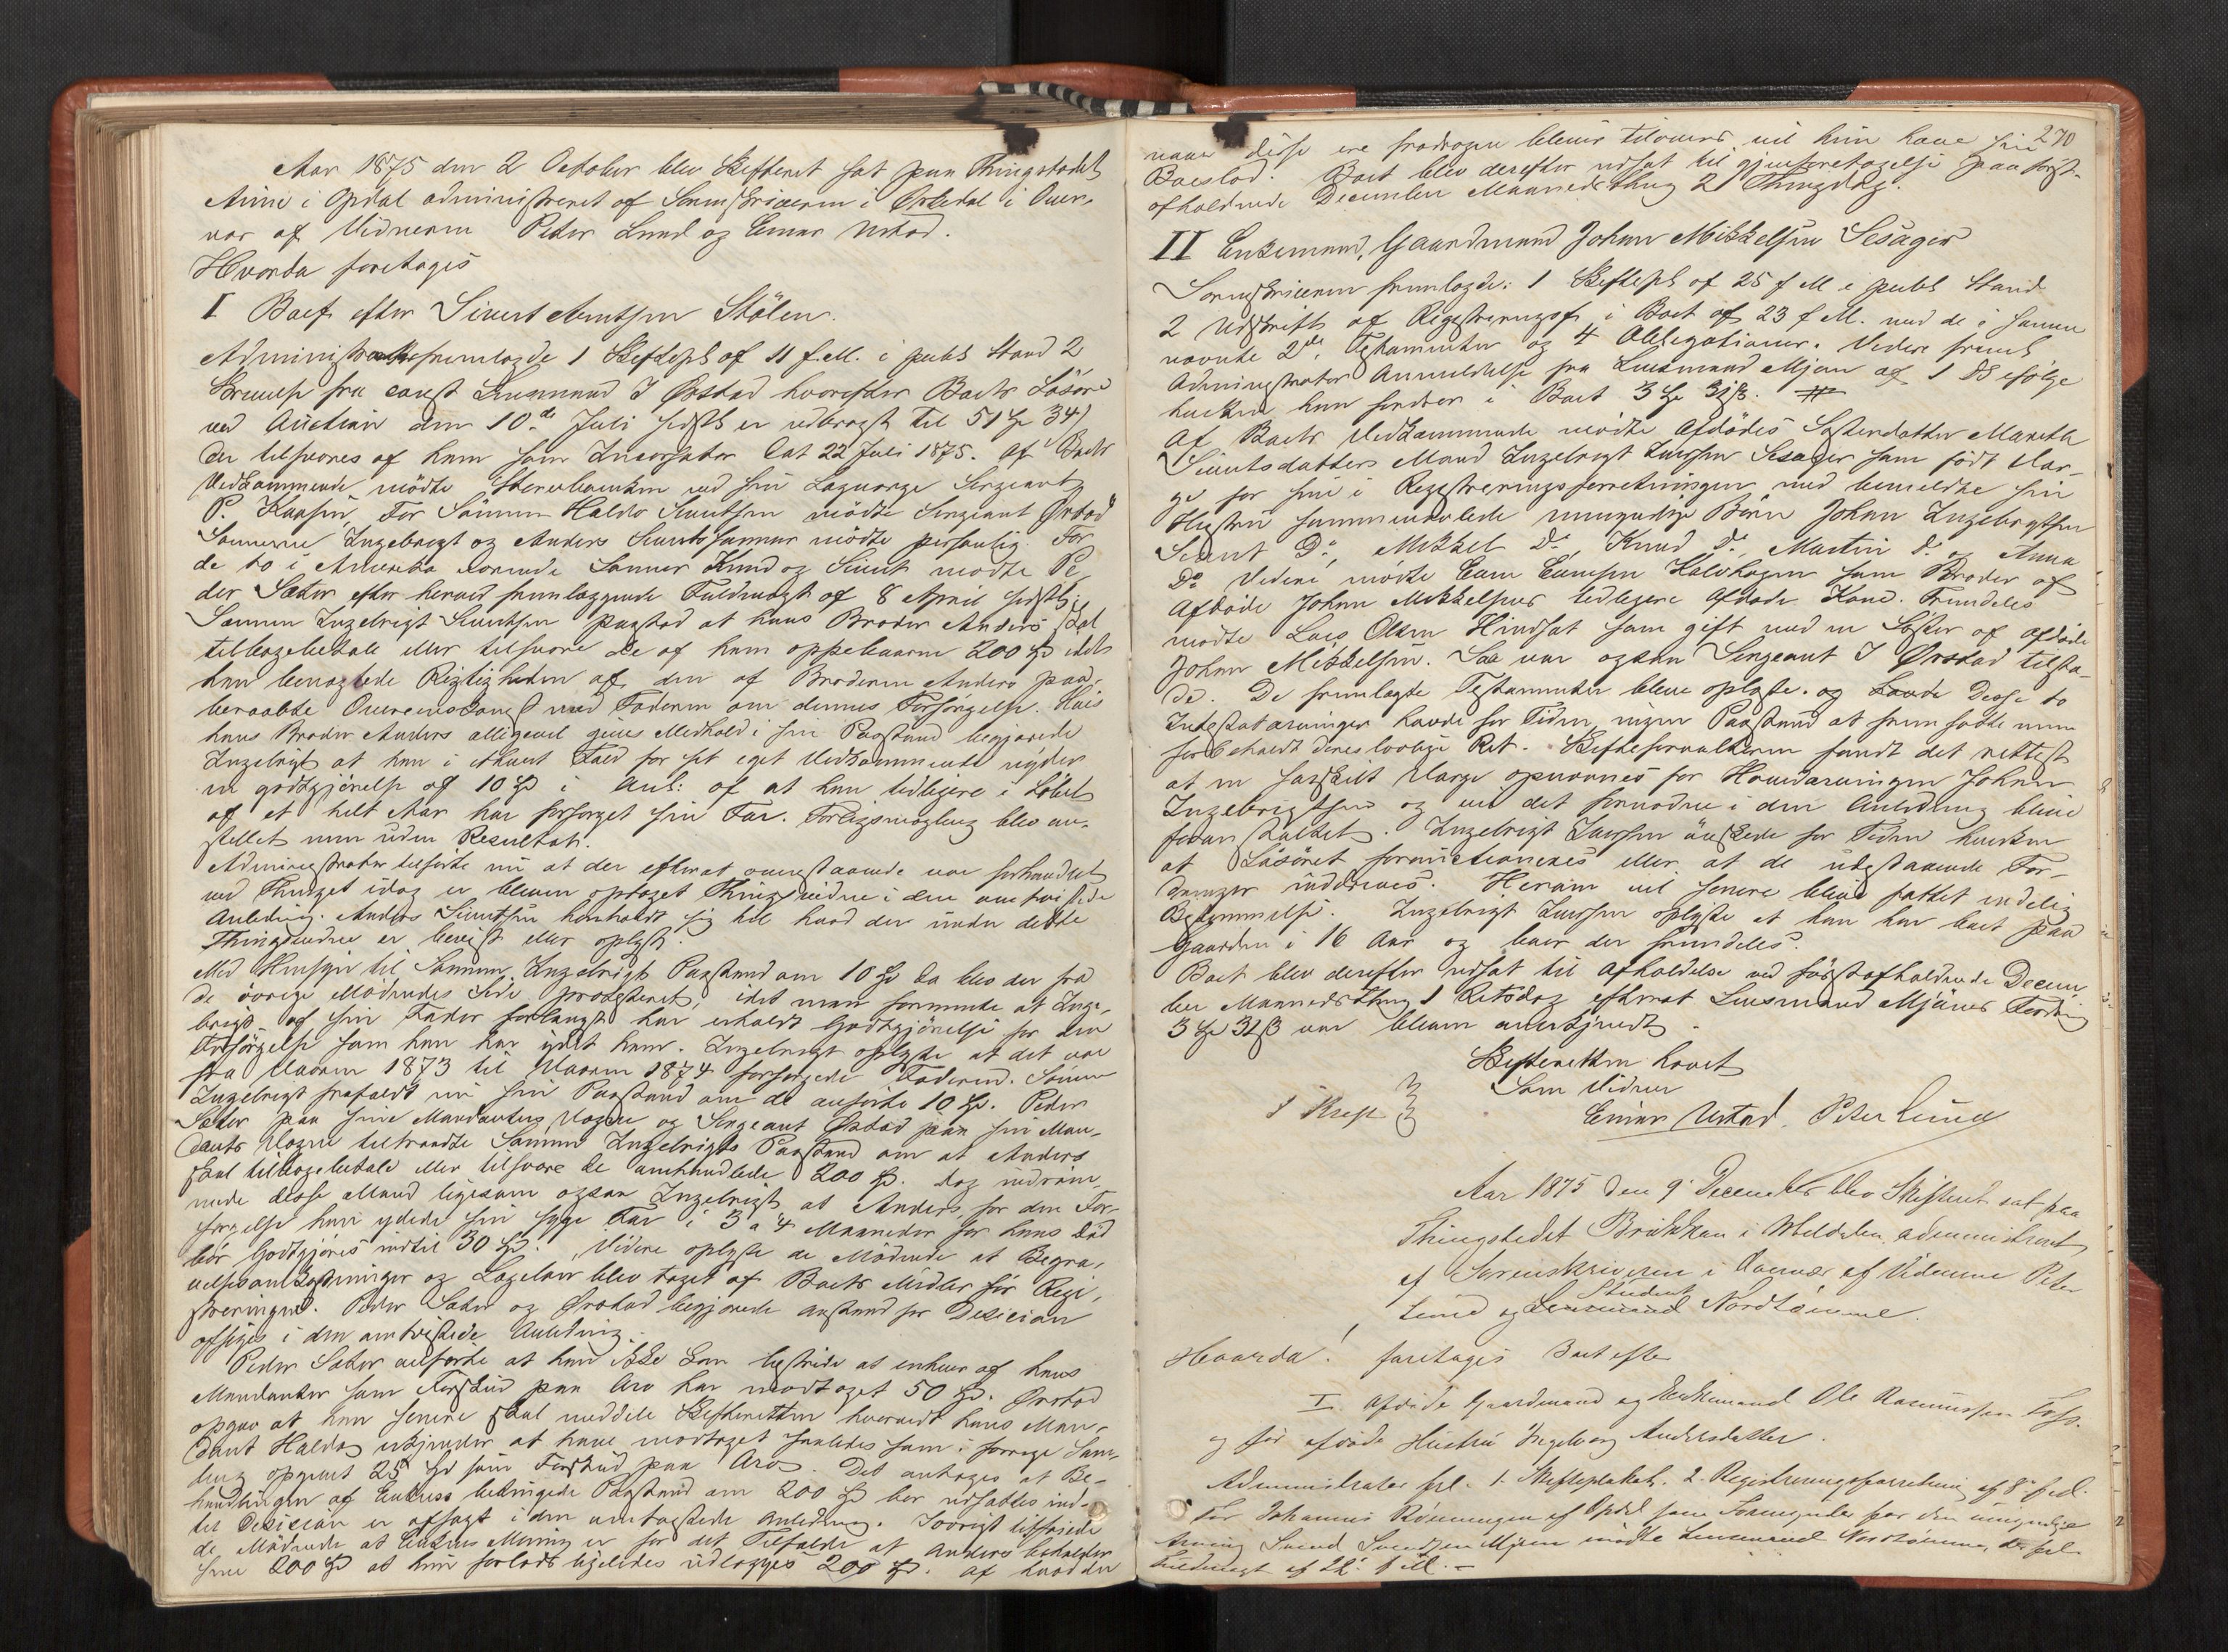 Aar 1875 den 2 October blev Skifteret sat paa Thingstedet
Aune i Opdal administreret af Sorenskriveren i Örkedal i Over-
vær af Vidnerne Peder Lund og Einar Urstad.
Hvorda foretoges
I Boet efter Sivert Arntsen Stölen.
Administrator fremlagde 1 Skiftepl af 11 f. M. i publ Stand 2
Skrivelse fra const Lensmand J Örstad hvorefter Boets Lösöre
ved Auction den 10de Juli sidstl er udbragt til 51 Sp 34 ß
der tilsvares af ham som Incassator dat 22 Juli 1875. Af Boets
Vedkommende mödte Stervboenken ved sin Laugværge Sergeant
P. Kaasen, For Sönnen Haldo Sivertsen mödte Sergeant Örstad
Sönnerne Ingebrigt og Anders Sivertssönner mödte personlig. For
de to i Amerika værende Sönner Knud og Sivert mödte Pe-
der Sæter efter herved fremlæggende Fuldmagt af 8 April sidstl.
Sönnen Ingebrigt Sivertsen paastod at hans Broder Anders skal
tilbagebetale eller tilsvare de af ham oppebaarne 200 Sp idet
han benægtede Rigtigheden af den af Broderen Anders paa-
beraabte Overenskomst med Faderen om dennes Forsörgelse. Hvis
hans Broder Anders alligevel gives Medhold i sin Paastand begjærede
Ingebrigt at han i ethvert Fald for sit eget Vedkommende nyder
en godtgjörelse af 10 Sp i Anl: af at han tidligere i Löbet
af et helt Aar har forsörget sin Far. Forligsmægling blev an-
stillet men uden Resultat.
Administrator tilförte nu at der efterat ovenstaaende var forhandlet
ved Thinget idag er bleven optaget Thingsvidne i den omtvistede
Anledning. Anders Sivertsen henholdt sig til hvad der under dette
Thingsvidne er bevist eller oplyst.
Med Hensyn til Sönnen Ingebrigts Paastand om 10 Sp da blev der fra
de övrige Mödendes Side protesteret, idet man formente at Inge-
brigt af sin Fader forlængst har erholdt Godtgjörelse for den
Forsörgelse som han har ydet ham. Ingebrigt oplyste at det var
fra Vaaren 1873 til Vaaren 1874 forsörgede Faderen. Sönnen
Ingebrigt frafaldt nu sin Paastand om de anförte 10 Sp. Peder
Sæter paa sine Mandanters Vegne og Sergeant Örstad paa sin Man-
dants Vegne tiltraadte Sönnen Ingebrigts Paastand om at Anders
skal tilbagebetale eller tilsvare de omhandlede 200 Sp. dog indröm-
mede disse Mænd ligesom ogsaa Ingebrigt at Anders, for den For-
sörgelse han ydede sin syge Far i 3 a 4 Maaneder för hans Död
bör Godtgjöres indtil 30 Sp. Videre oplyste de Mödende at Begra-
velsesomkostninger og Lagelön blev taget af Boets Midler för Regi-
streringen. Peder Sæter og Örstad begjærede anstand for Decision
afsiges i den omtvistede Anledning.
Peder Sæter anförte at han ikke kan bestride at enhver af hans
Mandanter som Forskud paa Arv har modtaget 50 Sp. Örstad
opgav at han senere skal meddele Skifteretten hvorvidt hans Man-
dant Haldo erkjender at have modtaget saaledes som i forrige Sam-
ling opgivet 25 Sp som Forskud paa Arv. Det antoges at Be-
handlingen af Enkens betingede Paastand om 200 Sp bör udsættes ind-
til Decision er afsagt i den omtvistede Anledning. Iövrigt tilföiede
de Mödende at Enkens Mening er for det Tilfælde at Anders beholder
sine 200 Sp at hun forlods ligeledes udlægges 200 Sp. af hvad der
270
naar disse ere fradragne bliver tilovers vil hun have sin
Boeslod. Boet blev derefter udsat til gjenforetagelse paa först-
afholdende December Maanedsthing 2 Thingdag.
II Enkemand, Gaardmand Johan Mikkelsen Sesäger
Sorenskriveren fremlagde: 1 Skiftepl af 25 f M i publ Stand
2 Udskrift af Registreringsf. i Boet af 23 f M. med de i samme
nævnte 2de Testamenter og 4 Obligationer. Videre freml
Administrator Anmeldelse fra Lensmand Mjöen af 1 ds ifölge
hvilken han fordrer i Boet 3 Sp 32 ß. #
Af Boets Vedkommende mödte Afdödes Sösterdatter Mareth
Sivertsdatters Mand Ingebrigt Larssen Sesäger som födt Vær-
ge for sine i Registreringsforretningen med bemeldte sin
Hustru sammenavlede umyndige Börn Johan Ingebrigtsen
Sivert Do, Mikkel Do, Knud Do, Martin Do og Anna
Do Videre mödte Even Evensen Kalvhagen som Broder af
Afdöde Johan Mikkelsens tidligere afdöde Kone. Fremdeles
mödte Lars Olsen Hindset som gift med en Söster af afdöde
Johan Mikkelsen. Saa var ogsaa Sergeant J Örstad tilste-
de. De fremlagte Testamenter bleve oplæste. og havde disse to
Intestatarvinger havde for Tiden ingen Paastand at fremsætte men
forbeholdt deres lovlige Ret. Skifteforvalteren fandt det rettest
at en særskilt Værge opnævnes for Hovedarvingen Johan
Ingebrigtsen og vil det fornödne i den Anledning blive
foranstaltet. Ingebrigt Larssen önskede for Tiden hverken
at Lösöret forauctioneres eller at de udestaaende For-
dringer inddrives. Herom vil senere blive fattet endelig
Bestemmelse. Ingebrigt Larssen oplyste at han har boet paa
Gaarden i 16 Aar og boer der fremdeles.
Boet blev derefter udsat til Afholdelse ved förstafholdende Decem-
ber Maanedsthing 1 Retsdag efterat Lensmand Mjöens Fordring
3 Sp 32 ß var bleven anerkjendt.
Skifteretten hævet
Som Vidner
Einar Urstad. Peter Lund
Aar 1875 den 9 December blev Skifteret sat paa
Thingstedet Brækken i Meldalen administreret
af Sorenskriveren i Overvær af Vidnerne Peter
Student
Lund og Lensmand Nordtömme.
Hvorda! foretoges Boet efter
I. Afdöde Gaardmand og Enkemand Ole Rasmussen Foss.
og för afdöde Hustru Ingeborg Andersdatter.
Administrator frl. 1. Skifteplakat. 2. Registreringsforretning af 8 f.M.
For Johannes Rönningen af Opdal som Formynder for den umyndige
Arving Svend Svendsen Mjöen mödte Lensmand Nordtömme, der frl.
Fuldmagt af 22 f M. –